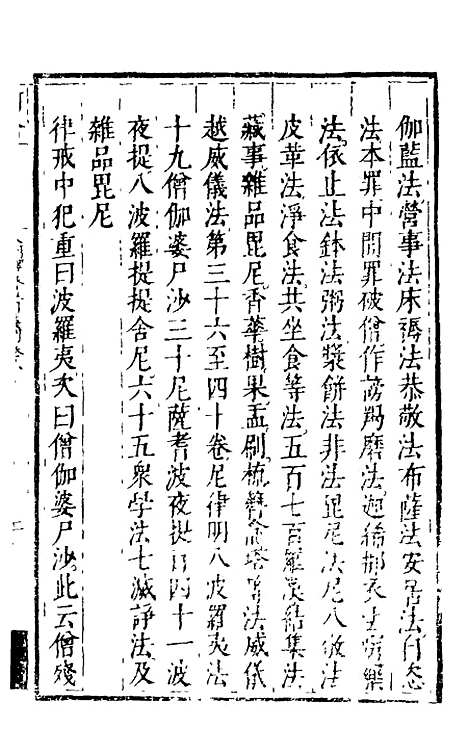 伽藍法營事法床褥法恭敬法布薩法安居法自恣
法本罪中間罪破僧作謗羯磨法迦絺那衣法病藥
法依止法鉢法粥法漿餅法非法毘尼法尼八敬法
皮革法淨食法共坐食等法五百七百羅漢結集法
藏事雜品毘尼香華樹果盂刷梳塔法威儀
越威儀法第三十六至四十卷尼律明八波羅夷法
十九僧伽婆尸沙三十尼薩耆波夜提百四十一波
夜提八波羅提提舍尼六十五衆學法七滅諍法及
雜品毘尼
律戒中犯重曰波羅夷夫曰僧伽婆尸沙此云僧殘